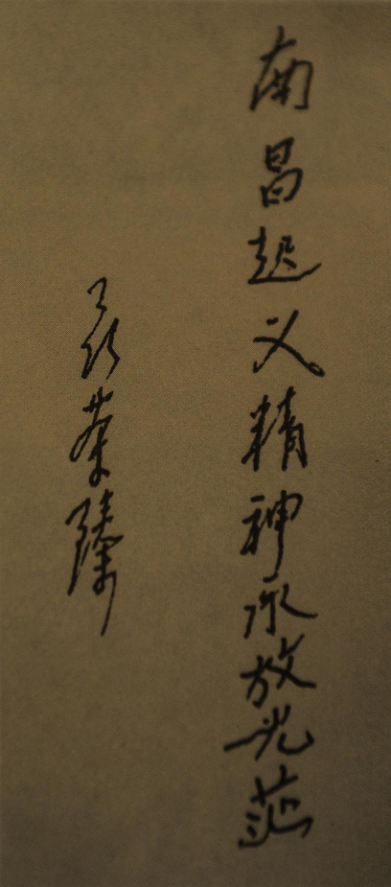 南昌起义精神永放光芒
聂荣臻